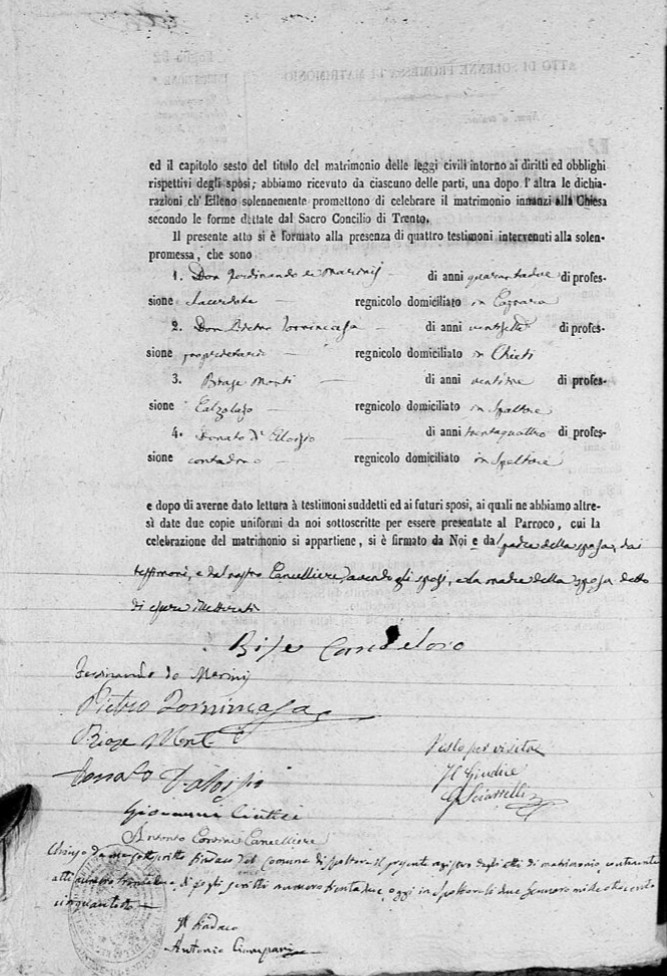 ed il capitolo sesto del titolo del matrimonio delle leggi civili intorno ai diritti ed obblighi
rispettivi degli sposi; abbiamo ricevuto da ciascuno delle parti, una dopo l'altra le dichia-
razioni ch'Esseno solennemente promettono di celebrare il matrimonio innanzi alla Chiesa
secondo le forme dettate dal Sacro Concilio di Trento.
Il presente atto si è formato alla presenza di quattro testimoni intervenuti alla solen-
promessa, che sono
1. Don Ferdinando de Marinis di anni quarantadue di profes-
sione Sacerdote regnicolo domiciliato in
2. Don Pietro Tominicasa di anni ventisette di profes-
sione proprietario regnicolo domiciliato in Chieti
3. Biage Monti di anni di profes-
sione Calzolajo regnicolo domiciliato in Spoltore
4. Donato d'Eloisio di anni trentaquattro di profes-
sione contadino regnicolo domiciliato in Spoltore
e dopo di averne dato lettura à testimoni suddetti ed ai futuri sposi, ai quali ne abbiamo altre-
sì date due copie uniformi da noi sottoscritte per essere presentate al Parroco, cui la
celebrazione del matrimonio si appartiene, si è firmato da Noi e dal padre della sposa, dai
testimoni, e dal nostro Cancelliere, avendo gli sposi, e la madre della sposa detto
di essere illetterati
Candeloro
Ferdinando de Marinis
Pietro Tominicasa
Biage Monti
Donato
Visto per visita
Il Giudice
Giovanni
Antonio Cancelliere
Chiuso da me sottoscritto Sindaco del Comune di Spoltore il presente registro degli atti di matrimonio, contenente
atti numero trentadue, oggi in Spoltore li due Gennaro mille ottocento
cinquantotto
Il Sindaco
Antonio